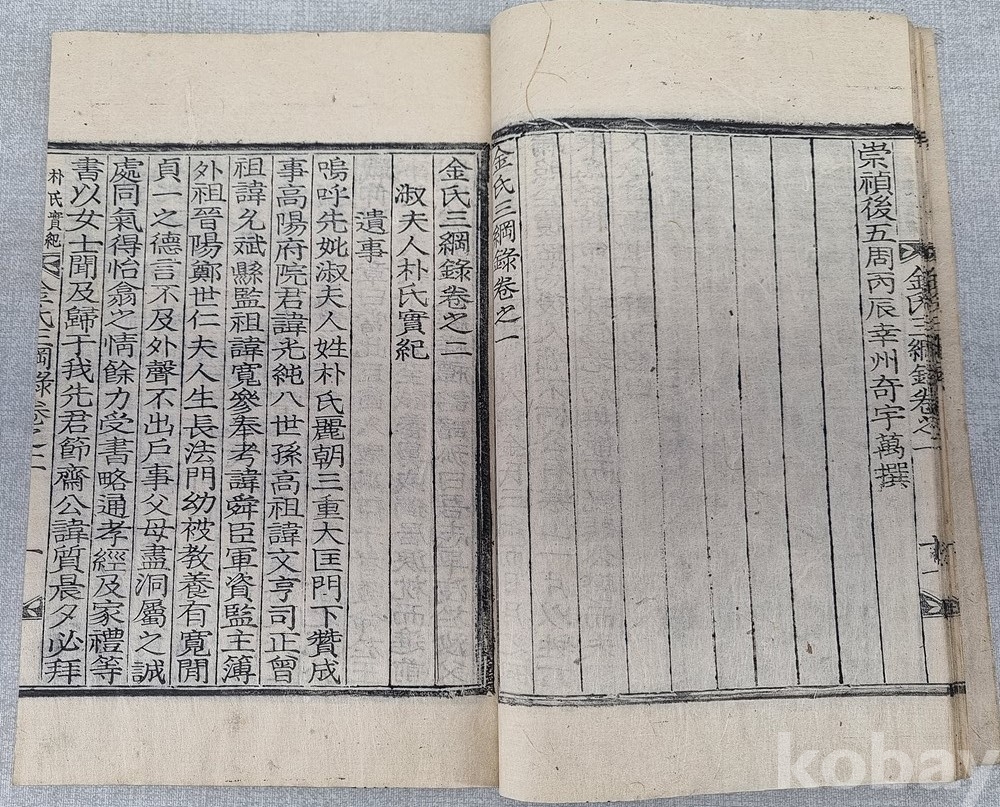 崇禎後五周丙辰幸州奇宇萬撰
金氏三綱錄卷之一
金氏三綱錄卷之一
金氏三綱錄卷之二
淑夫人朴氏實紀
遺事
嗚呼先妣淑夫人姓朴氏麗朝三重大匡門下贊成
事高陽府院君諱光純八世孫高祖諱文亨司正曾
祖諱允斌縣監祖諱寬參奉考諱舜臣軍資監主簿
外祖晉陽鄭世仁夫人生長法門幼被教養有寬閒
貞一之德言不及外聲不出戶事父母盡洞屬之誠
處同氣得怡翕之情餘力受書略通孝經及家禮等
書以女士聞及歸于我先君節齋公諱質晨夕必拜
朴氏實紀
金氏三綱錄卷之二
一
kobay